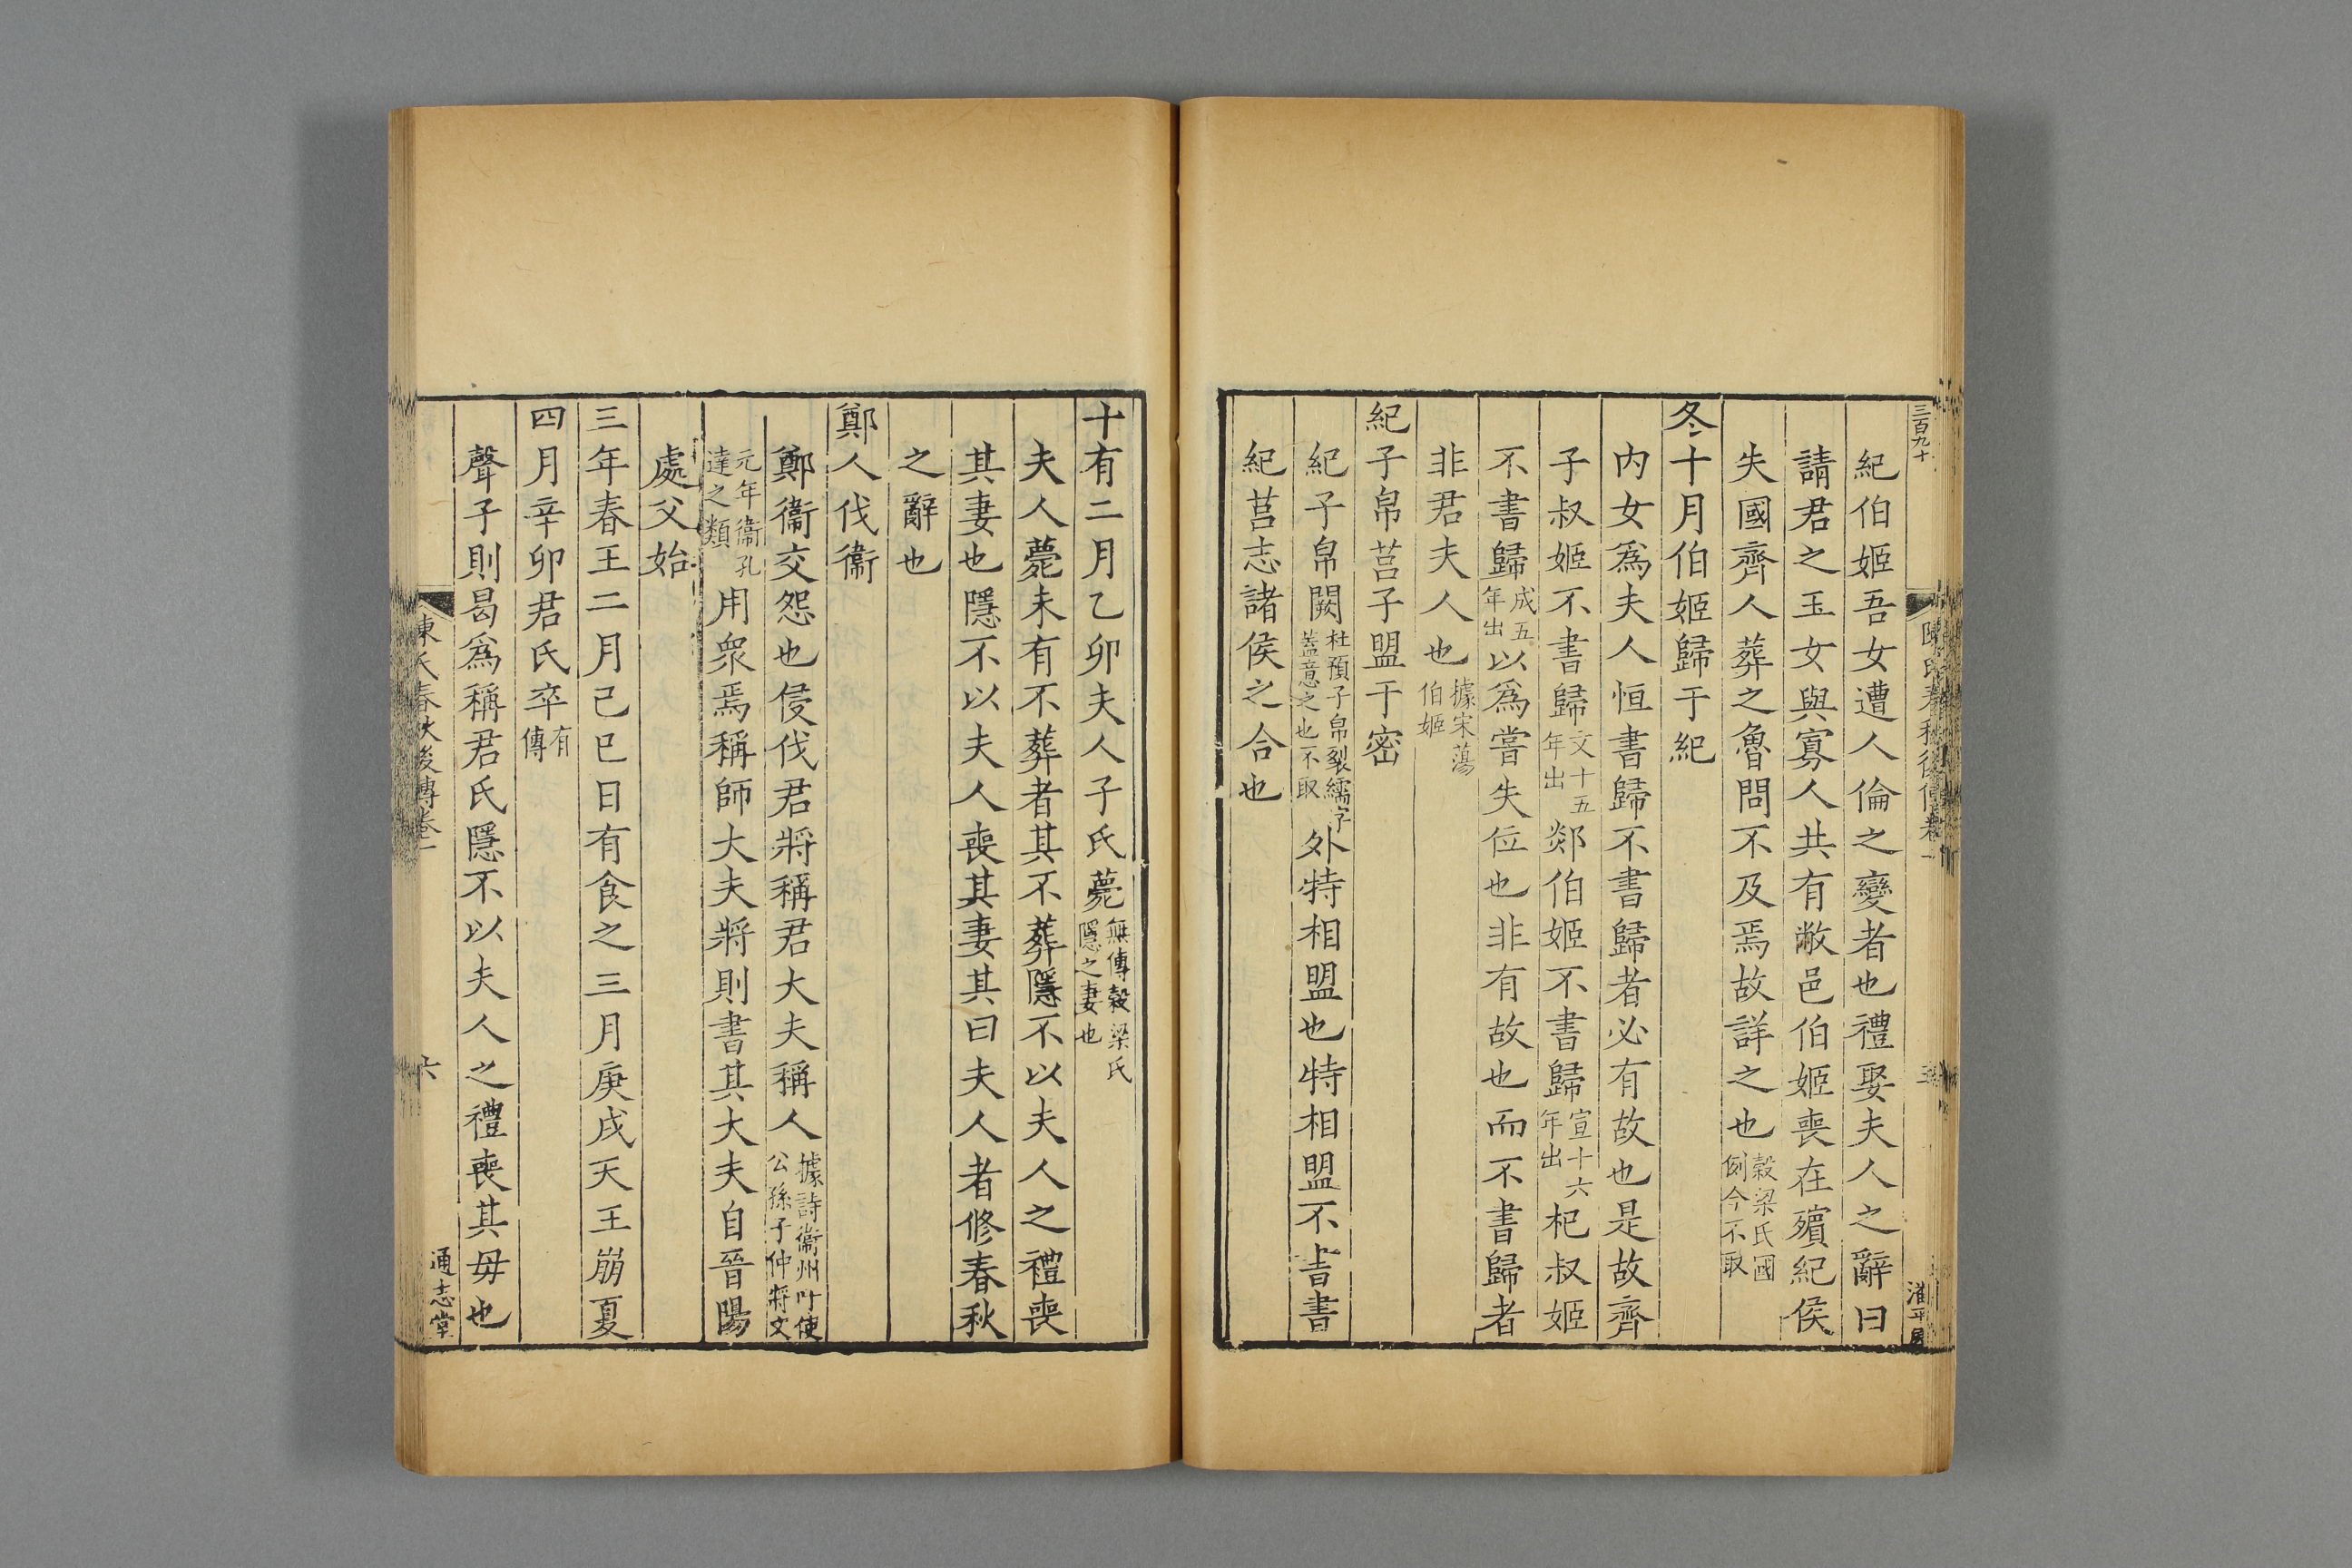 三百九十
紀伯姬吾女遭人倫之變者也禮娶夫人之辭曰
請君之玉女與寡人共有敝邑伯姬喪在殯紀侯
失國齊人葬之魯問不及焉故詳之也穀梁氏國例今不取
冬十月伯姬歸于紀
内女爲夫人恒書歸不書歸者必有故也是故齊
子叔姬不書歸文十五年出郯伯姬不書歸宣十六年出杞叔姬
不書歸成五年出以爲嘗失位也非有故也而不書歸者
非君夫人也據宋蕩伯姬
紀子帛莒子盟于密
紀子帛闕杜預子帛裂繻字蓋意之也不取外特相盟也特相盟不書書
紀莒志諸侯之合也
十有二月乙卯夫人子氏薨無傳穀梁氏隱之妻也
夫人薨未有不葬者其不葬隱不以夫人之禮喪
其妻也隱不以夫人喪其妻其曰夫人者修春秋
之辭也
鄭人伐衞
鄭衞交怨也侵伐君將稱君大夫稱人據詩衞州吁使公孫子仲將文
元年衞孔達之類用衆焉稱師大夫將則書其大夫自晉陽
處父始
三年春王二月己巳日有食之三月庚戌天王崩夏
四月辛卯君氏卒有傳
聲子則曷爲稱君氏隱不以夫人之禮喪其毋也
陳氏春秋後傳卷一
六
通志堂